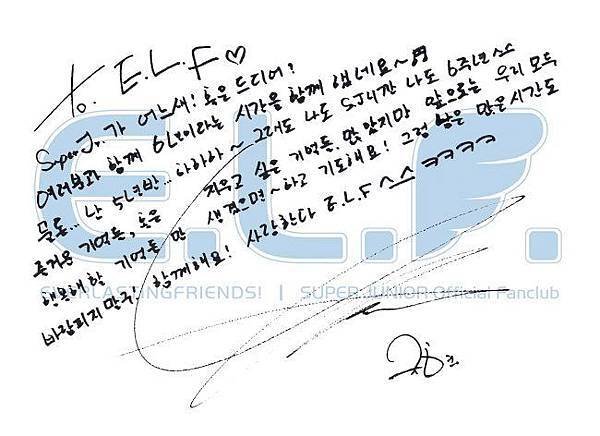 to. E.L.F♡
Super Jr.가 어느새! 혹은 드디어!
여러분과 함께 6년이라는 시간을 함께 했네요~♬
물론... 난 5년반... 아하하~ 그래도 나도 SJ니까 나도 6주년ㅅㅅ
즐거운 기억들, 혹은 지우고 싶은 기억들. 많았지만 앞으로는 우리 모두
행복해 할 기억들 만 생겼으면~하고 기도해요! 그럼 남은 많은시간도
바람피지 말고! 함께해요! 사랑한다 E.L.F ^^ ㅋㅋㅋㅋ
E.L.F.
EVERLASTINGFRIENDS! | SUPER JUNIOR Official Fanclub